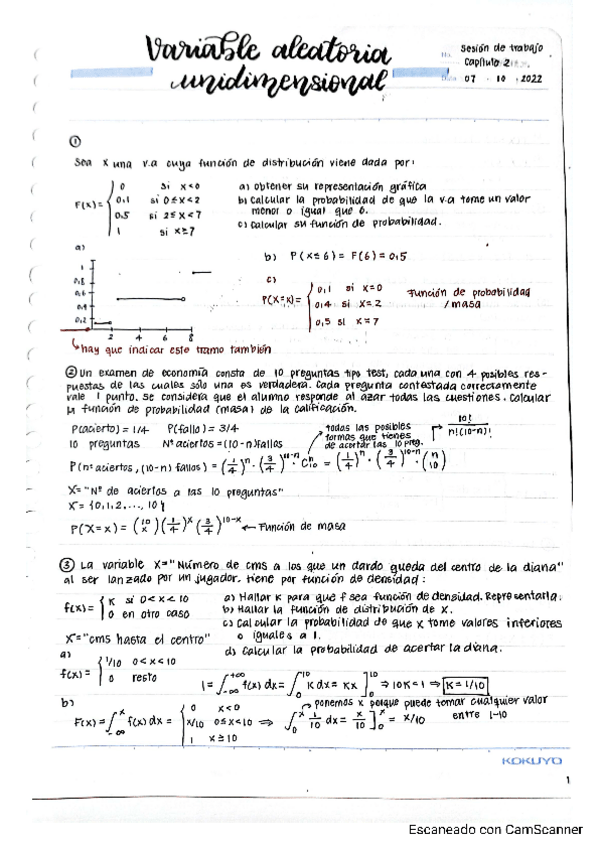 Variable aleatoria
unidimensional
No. Sesión de trabajo
Capítulo 2
Date 07 · 10 · 2022
①
Sea X una v.a cuya función de distribución viene dada por:
F(x)= { 0 si x<0
0,1 si 0≤x<2
0,5 si 2≤x<7
1 si x≥7
a) obtener su representación gráfica
b) Calcular la probabilidad de que la v.a tome un valor
menor o igual que 6.
c) Calcular su función de probabilidad.
a)
1
0,8
0,6
0,4
0,2
2 4 6 8
hay que indicar este tramo también
b) P(X≤6) = F(6) = 0,5
c)
P(X=x)= { 0,1 si x=0
0,4 si x=2
0,5 si x=7
Función de probabilidad
/masa
② Un examen de economía consta de 10 preguntas tipo test, cada una con 4 posibles res-
puestas de las cuales sólo una es verdadera. Cada pregunta contestada correctamente
vale 1 punto. Se considera que el alumno responde al azar todas las cuestiones. Calcular
la función de probabilidad (masa) de la calificación.
P(acierto) = 1/4 P(fallo) = 3/4
10 preguntas Nº aciertos = (10-n) fallos
todas las posibles
formas que tienes
de acertar las 10 preg.
10!
n!(10-n)!
P(nº aciertos, (10-n) fallos) = (1/4)^n · (3/4)^10-n · C^n_10 = (1/4)^n · (3/4)^10-n · (n 10)
X= "Nº de aciertos a las 10 preguntas"
X= {0,1,2..., 10}
P(X=x) = (10 x) (1/4)^x (3/4)^10-x ← Función de masa
③ La variable X="Número de cms a los que un dardo queda del centro de la diana"
al ser lanzado por un jugador, tiene por función de densidad:
f(x)= { K si 0<x<10
0 en otro caso
X="cms hasta el centro"
a) Hallar K para que f sea función de densidad. Representarla.
b) Hallar la función de distribución de X.
c) Calcular la probabilidad de que X tome valores inferiores
o iguales a 1.
d) Calcular la probabilidad de acertar la diana.
a)
f(x)= { 1/10 0<x<10
0 resto
1 = ∫_-∞^+∞ f(x) dx = ∫_0^10 K dx = Kx ]_0^10 ⇒ 10K=1 ⇒ K=1/10
b)
F(x) = ∫_-∞^x f(x) dx = { 0 x<0
x/10 0≤x<10
1 x≥10
⇒ ∫_0^x 1/10 dx = x/10 ]_0^x = x/10
ponemos x porque puede tomar cualquier valor
entre 1-10
KOKUYO
1
Escaneado con CamScanner